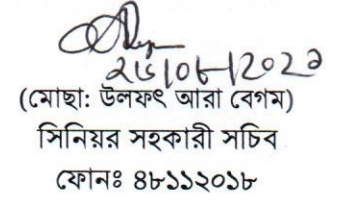 (মোছা: উলফৎ আরা বেগম)
সিনিয়র সহকারী সচিব
ফোনঃ ৪৮১১২০১৮